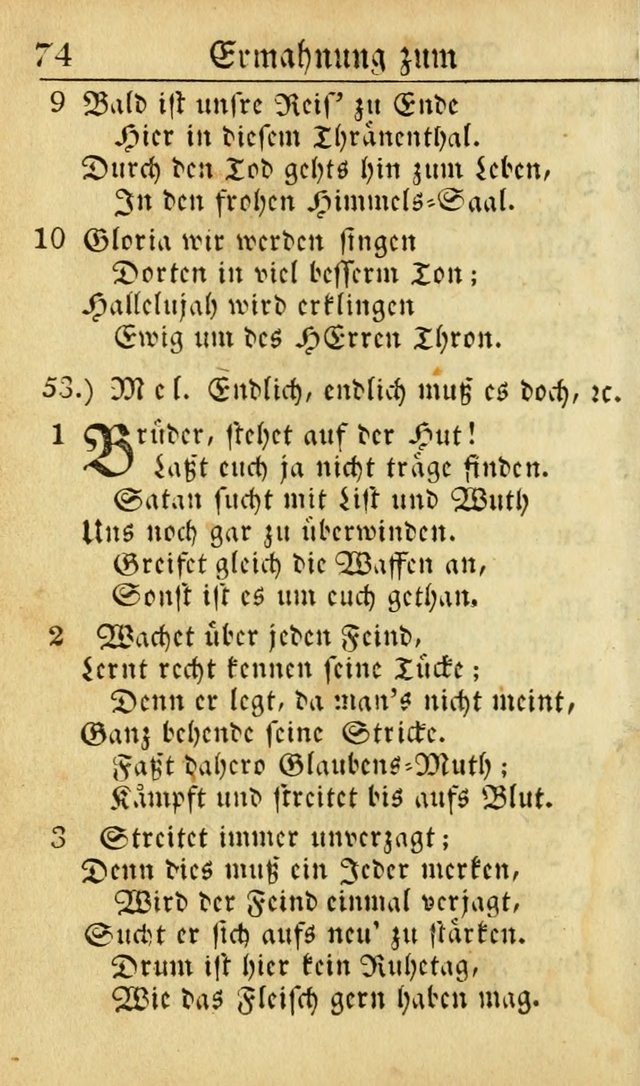 74 Ermahnung zum
9 Bald ist unsre Reis' zu Ende
Hier in diesem Thränenthal.
Durch den Tod gehts hin zum Leben,
In den frohen Himmels-Saal.
10 Gloria wir werden singen
Dorten in viel besserm Ton;
Hallelujah wird erklingen
Ewig um des HErren Thron.
53.) Mel. Endlich, endlich muß es doch, ꝛc.
1 Brüder, stehet auf der Hut!
Laßt euch ja nicht träge finden.
Satan sucht mit List und Wuth
Uns noch gar zu überwinden.
Greifet gleich die Waffen an,
Sonst ist es um euch gethan.
2 Wachet über jeden Feind,
Lernt recht kennen seine Tücke;
Denn er legt, da man's nicht meint,
Ganz behende seine Stricke.
Faßt dahero Glaubens-Muth;
Kämpft und streitet bis aufs Blut.
3 Streitet immer unverzagt;
Denn dies muß ein Jeder merken,
Wird der Feind einmal verjagt,
Sucht er sich aufs neu' zu stärken.
Drum ist hier kein Ruhetag,
Wie das Fleisch gern haben mag.